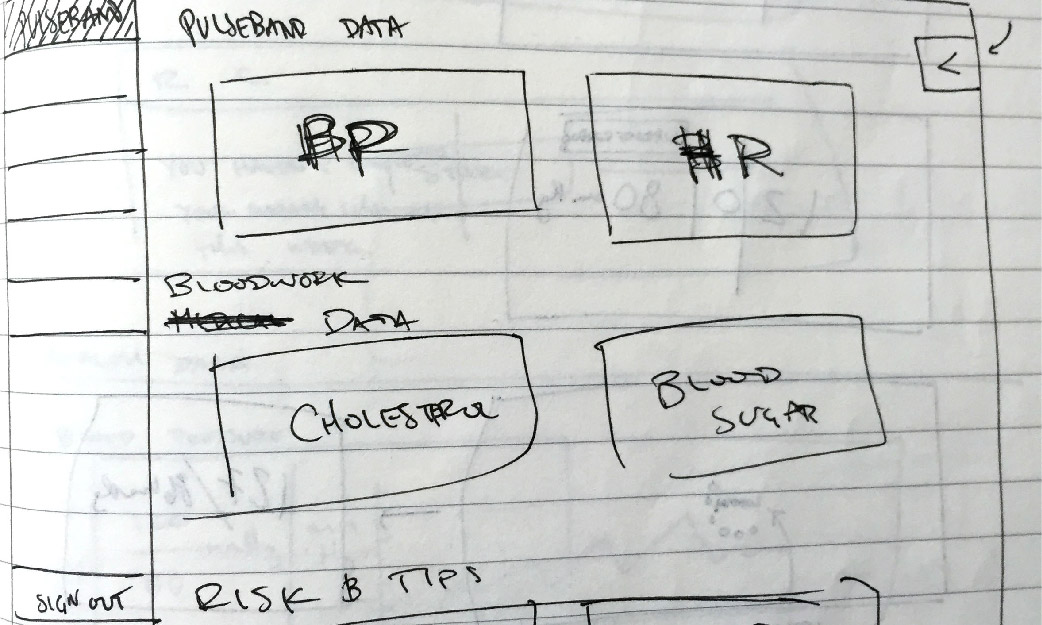 PULSEBAND
PULSEBAND DATA
<
BP
HR
BLOODWORK
DATA
CHOLESTEROL
BLOOD
SUGAR
SIGN OUT
RISK & TIPS